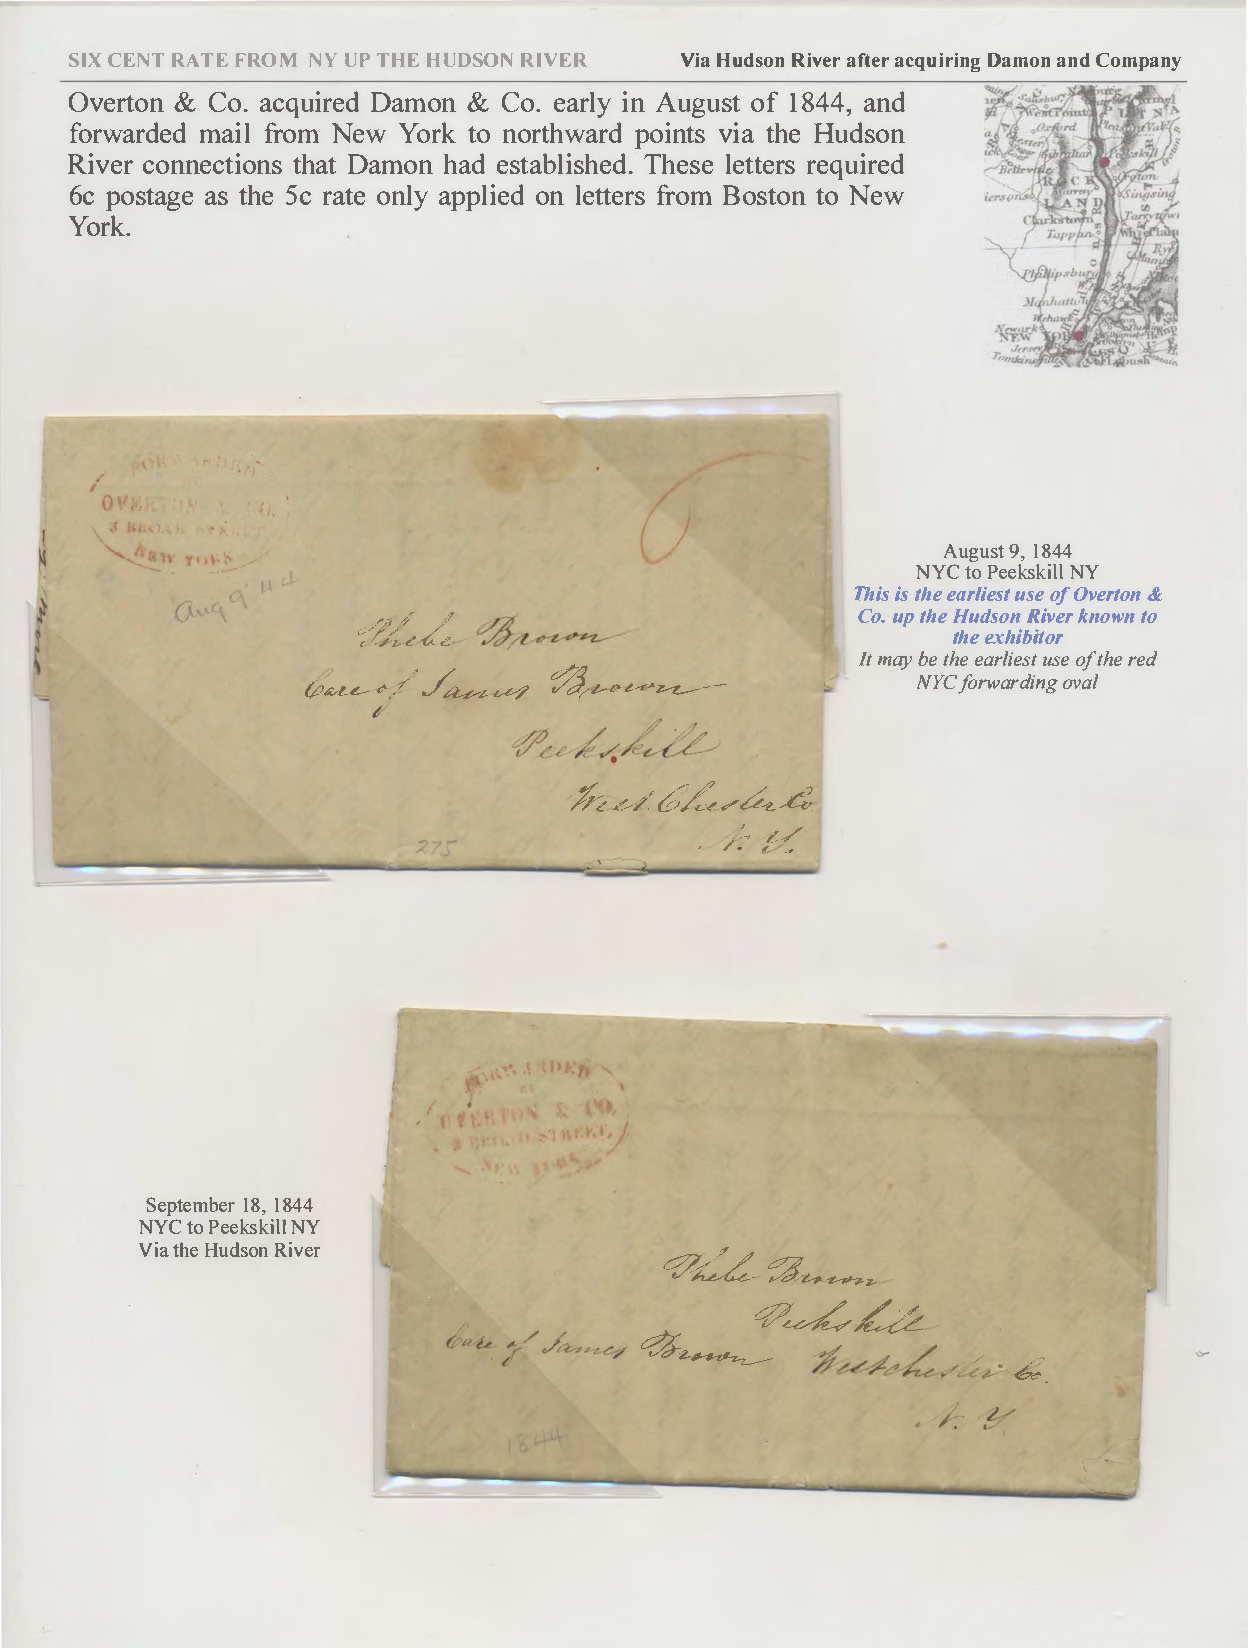 SIX CENT RATE FROM NY UP THE HUDSON RIVER
Via Hudson River after acquiring Damon and Company
Overton & Co. acquired Damon & Co. early in August of 1844, and
forwarded mail from New York to northward points via the Hudson
River connections that Damon had established. These letters required
6c postage as the 5c rate only applied on letters from Boston to New
York.
West Point
Oxford
Gibraltar
Peekskill
Belleville
ROCK
LAND
Singsing
Clarkstown
Tappan
Phillipsburg
Manhattan
Newark
NEW
FORWARDED
BY
OVERTON & CO.
3 BROAD STREET,
NEW YORK
6
Aug 9 '44
Phebe Brown
Care of James Brown
Peekskill
West Chester Co
N. Y.
275
August 9, 1844
NYC to Peekskill NY
This is the earliest use of Overton &
Co. up the Hudson River known to
the exhibitor
It may be the earliest use of the red
NYC forwarding oval
FORWARDED
BY
OVERTON & CO.
3 BROAD STREET,
NEW YORK
September 18, 1844
NYC to Peekskill NY
Via the Hudson River
Phebe Brown
Peekskill
Care of James Brown Westchester Co.
N. Y.
1844